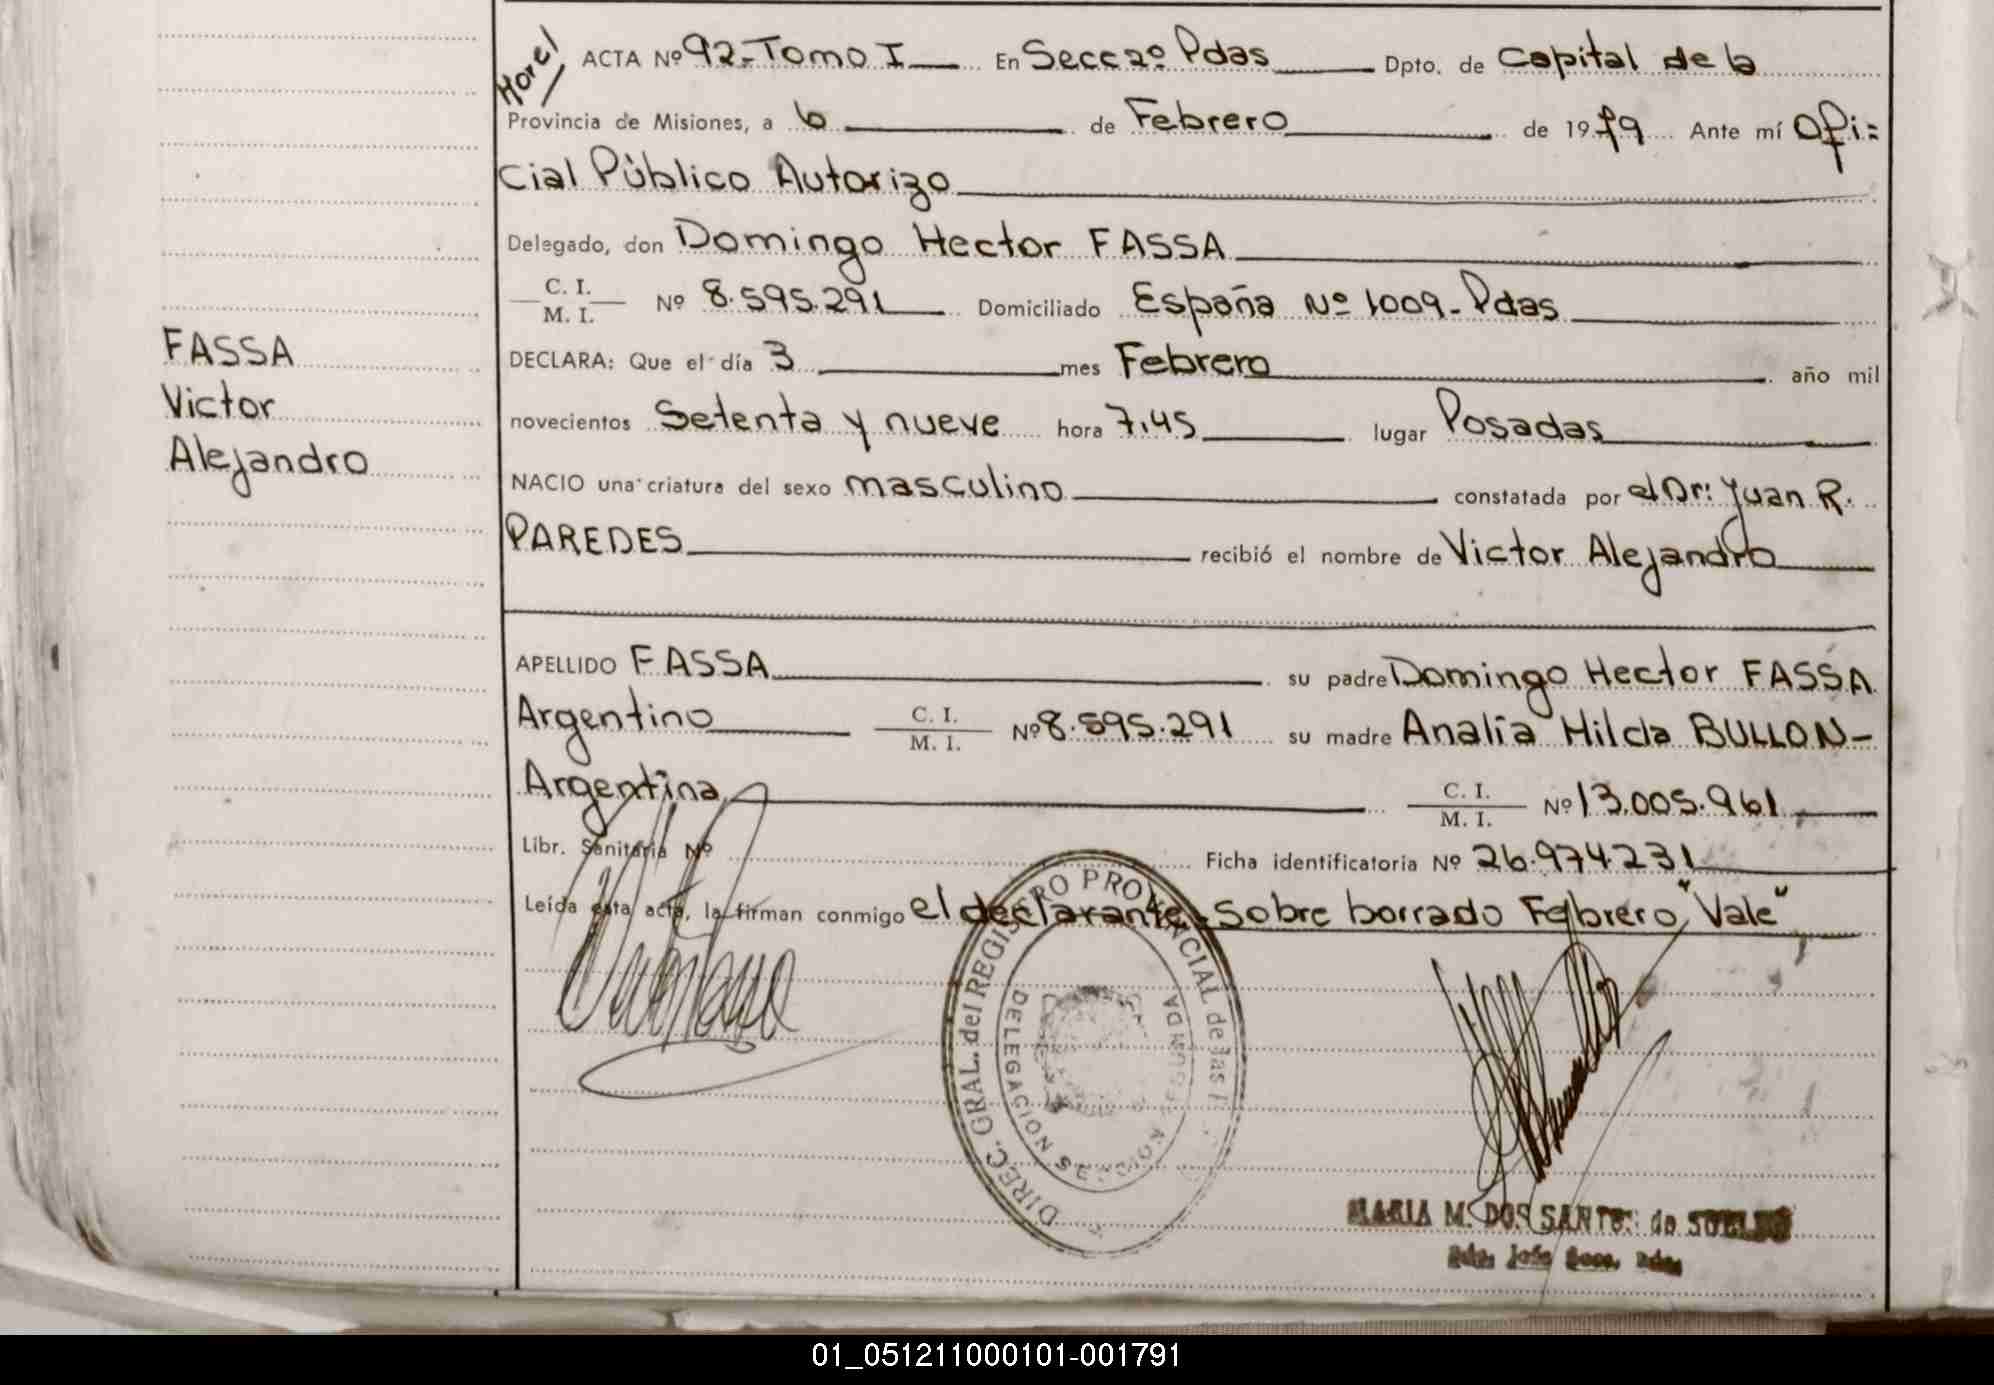 Horel
ACTA Nº 92-Tomo I En Secc 2º Pdas Dpto. de Capital de la
Provincia de Misiones, a 6 de Febrero de 1979 Ante mí Ofi=
cial Público Autorizo
Delegado, don Domingo Hector FASSA
C. I. / M. I. Nº 8.595.291 Domiciliado España Nº 1009- Pdas
FASSA
Victor
Alejandro
DECLARA: Que el día 3 mes Febrero año mil
novecientos Setenta y nueve hora 7,45 lugar Posadas
NACIO una criatura del sexo masculino constatada por el Dr: Juan R.
PAREDES recibió el nombre de Victor Alejandro
APELLIDO FASSA su padre Domingo Hector FASSA
Argentino C. I. / M. I. Nº 8.595.291 su madre Analía Hilda BULLON-
Argentina C. I. / M. I. Nº 13.005.961
Libr. Sanitaria Nº Ficha identificatoria Nº 26.974.231
Leída esta acta, la firman conmigo el declarante. Sobre borrado Febrero "Vale"
DIREC. GRAL. del REGISTRO PROVINCIAL de las
DELEGACION SEGUNDA
MARIA M. DOS SANTOS de
01_051211000101-001791